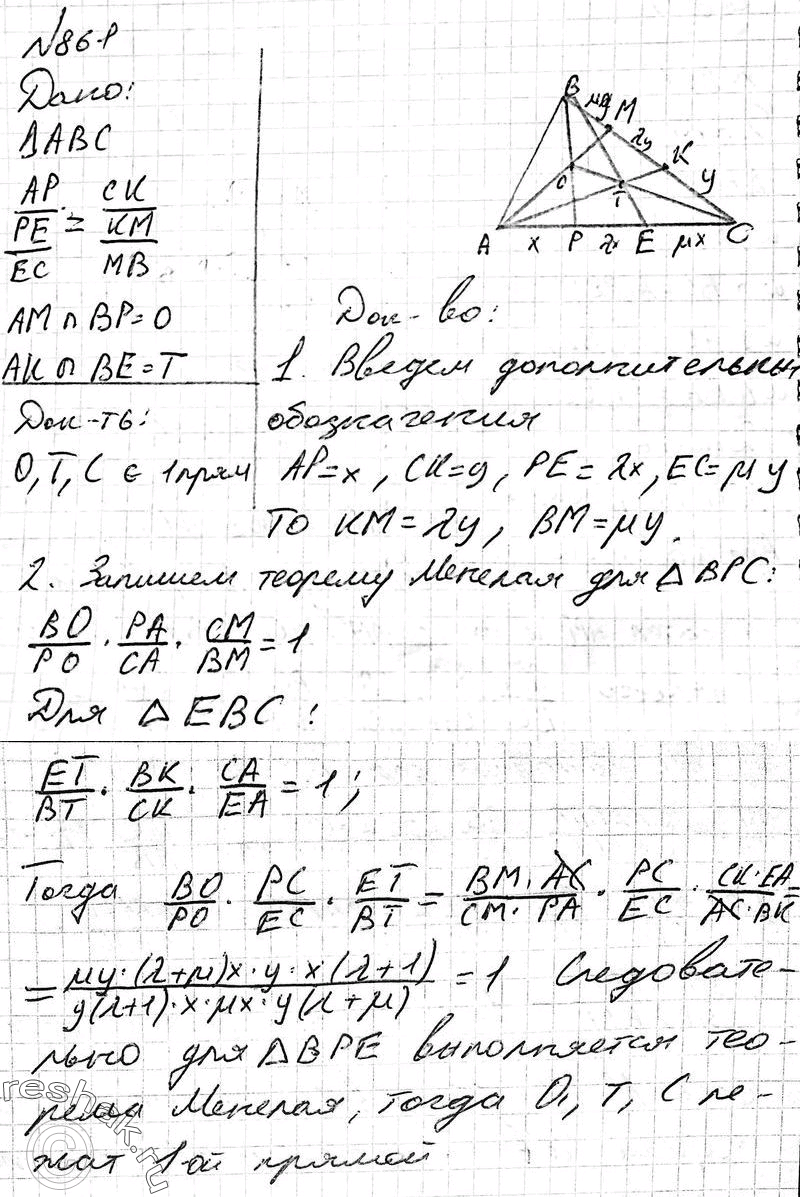 №86-P
Дано:
ΔABC
AP/PE/EC = CK/KM/MB
AM ∩ BP = O
AK ∩ BE = T
Док-ть:
O, T, C ∈ 1 прям
B μy M λy K y
O T
A x P λx E μx C
Док-во:
1. Введем дополнительны
обозначения
AP=x, CK=y, PE=λx, EC=μy
то KM=λy, BM=μy.
2. Запишем теорему Менелая для ΔBPC:
BO/PO · PA/CA · CM/BM = 1
Для ΔEBC:
ET/BT · BK/CK · CA/EA = 1;
Тогда BO/PO · PC/EC · ET/BT = BM·AC/CM·PA · PC/EC · CK·EA/AC·BK =
= μy·(λ+μ)x·y·x(λ+1)/y(λ+1)·x·μx·y(λ+μ) = 1 Следовате-
льно для ΔBPE выполняется тео-
рема Менелая, тогда O, T, C ле-
жат 1-ой прямой
© reshak.ru